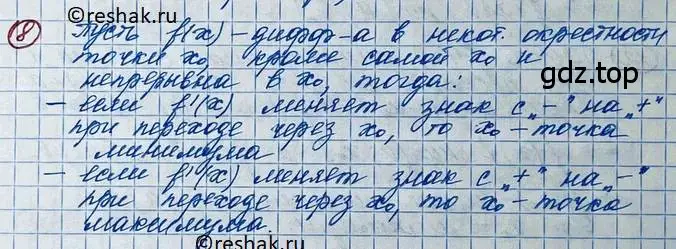 ©reshak.ru
8 Пусть f(x) – дифф-а в некот. окрестности
точки x₀, кроме самой x₀ и
gdz.top
непрерывна в x₀, тогда:
– если f'(x) меняет знак с „–“ на „+“
при переходе через x₀, то x₀ – точка
минимума
– если f'(x) меняет знак с „+“ на „–“
при переходе через x₀, то x₀ – точка
максимума.
©reshak.ru